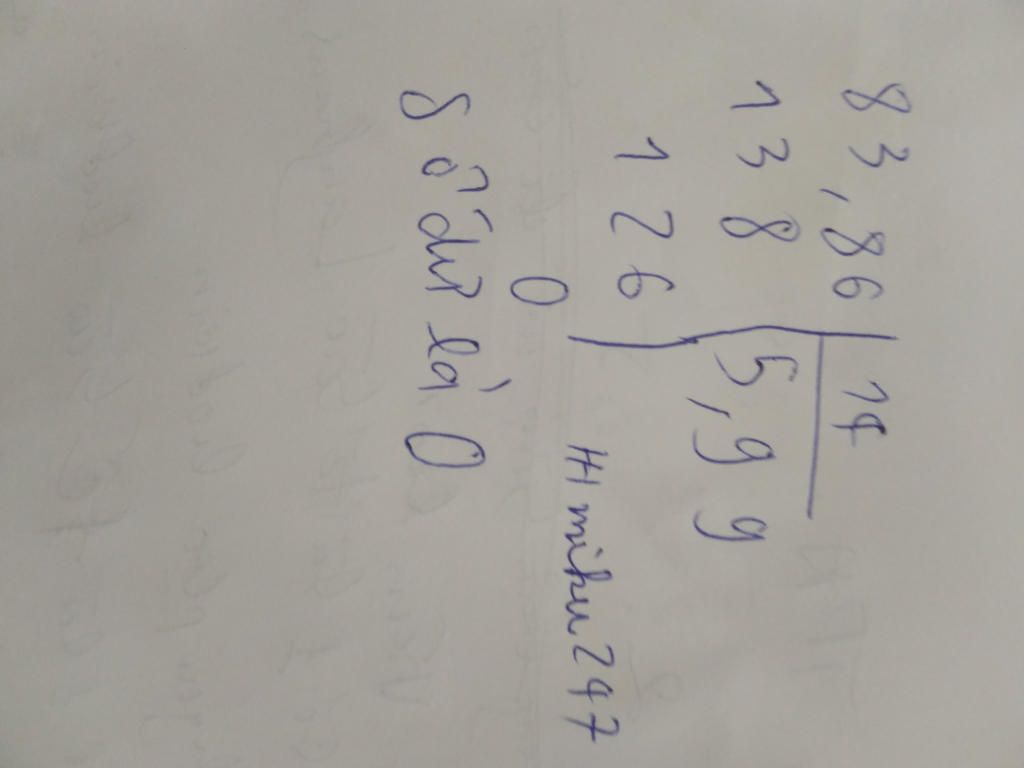 83,86 14
138 5,99
126
0
Himiku247
số dư là 0